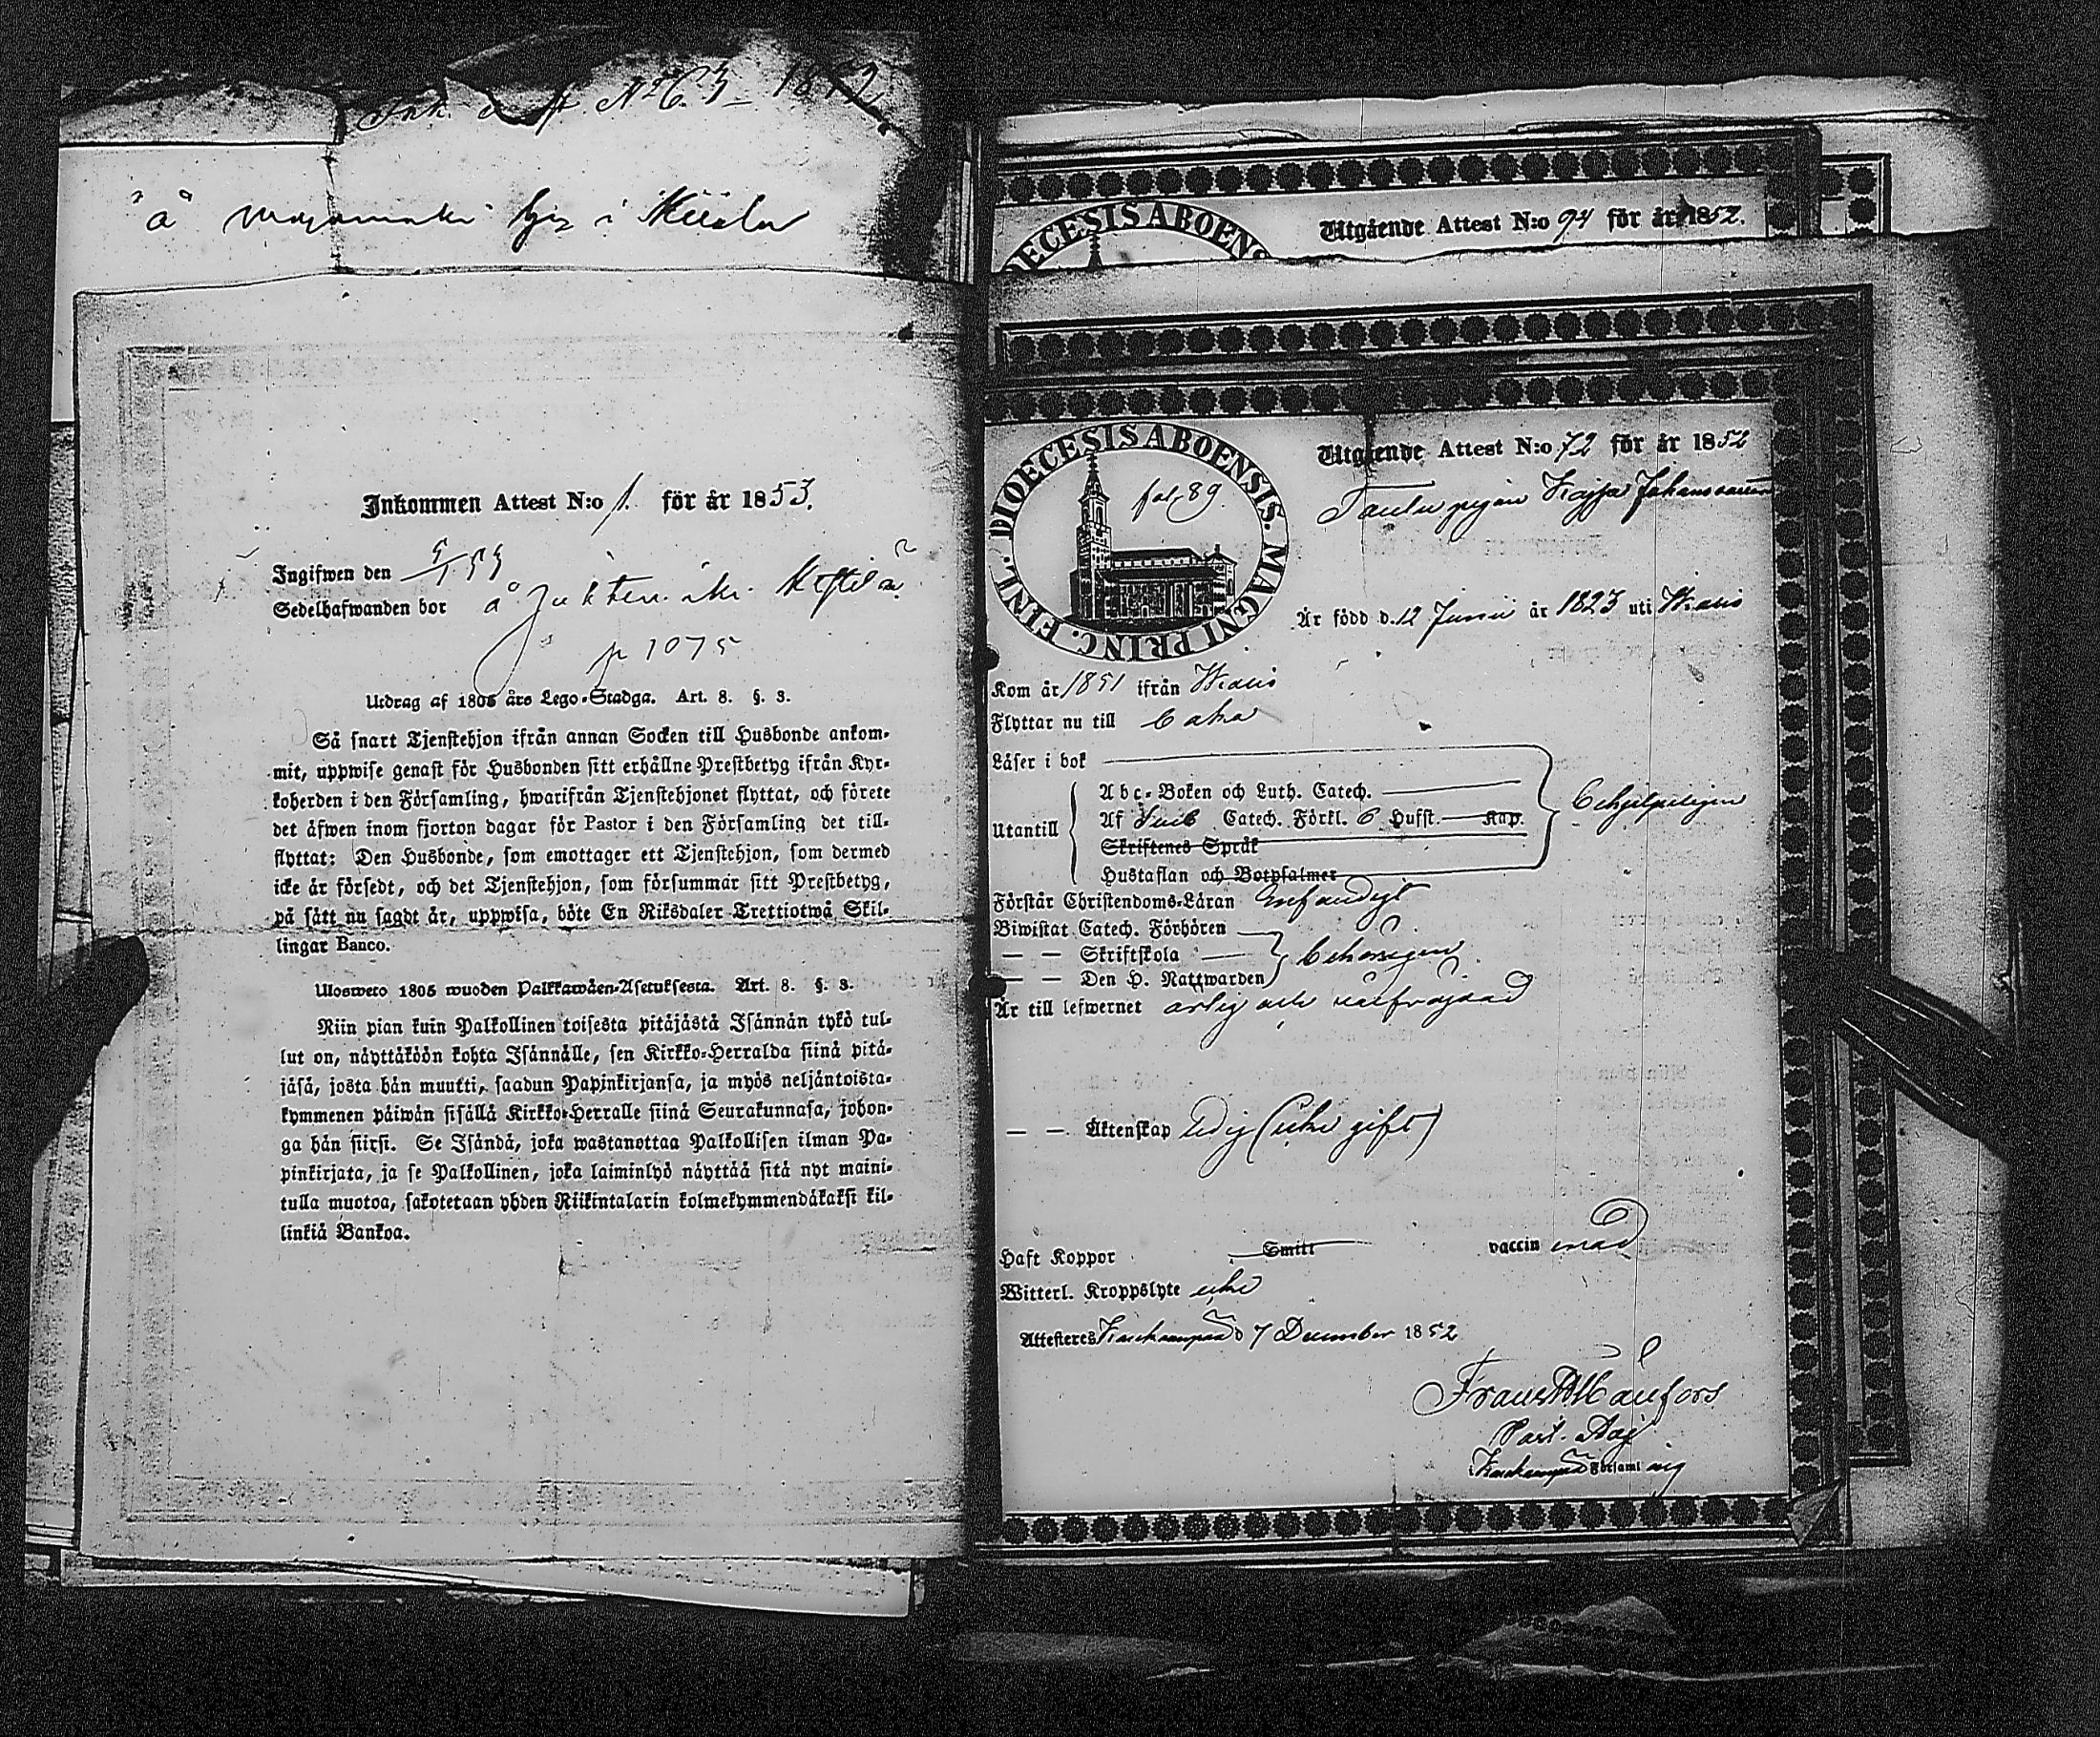 Ink. N:o 63 1852
å i
Inkommen Attest N:o 1. för år 1853.
Ingifwen den 5/1 53
Sedelhafwanden bor å
p 1075
Utdrag af 1805 års Lego-Stadga. Art. 8. §. 3.
Så snart Tjenstehjon ifrån annan Socken till Husbonde ankom-
mit, uppwise genast för Husbonden sitt erhållne Prestbetyg ifrån Kyr-
koherden i den Församling, hwarifrån Tjenstehjonet flyttat, och förete
det äfwen inom fjorton dagar för Pastor i den Församling det till-
flyttat: Den Husbonde, som emottager ett Tjenstehjon, som dermed
icke är försedt, och det Tjenstehjon, som försummar sitt Prestbetyg,
på sätt nu sagdt är, uppwisa, böte En Riksdaler Trettiotwå Skil-
lingar Banco.
Ulosweto 1805 wuoden Palkkawäen-Asetuksesta. Art. 8. §. 3.
Niin pian kuin Palkollinen toisesta pitäjästä Isännän tykö tul-
lut on, näyttäköön kohta Isännälle, sen Kirkko-Herralda siinä pitä-
jäsä, josta hän muutti, saadun Papinkirjansa, ja myös neljäntoista-
kymmenen päiwän sisällä Kirkko-Herralle siinä Seurakunnasa, johon-
ga hän siirsi. Se Isändä, joka wastanottaa Palkollisen ilman Pa-
pinkirjata, ja se Palkollinen, joka laiminlyö näyttää sitä nyt maini-
tulla muotoa, sakotetaan yhden Riikintalarin kolmekymmendäkaksi kil-
linkiä Bankoa.
DIOECESIS ABOENS
Utgående Attest N:o 94 för år 1852.
DIOECESIS ABOENSIS. MAGNI PRINC. FINL.
fol 89.
Utgående Attest N:o 72 för år 1852
pigan Kajsa Johansdotter
Är född d. 12 Junii år 1823 uti
Kom år 1851 ifrån
Flyttar nu till
Läser i bok
Utantill
Abc-Boken och Luth. Catech.
Af Sveb Catech. Förkl. 6 Hufst. Kap.
Skriftenes Språk
Hustaflan och Botpsalmer
behjelpeligen
Förstår Christendoms-Läran enfaudigt
Biwistat Catech. Förhören
— — Skriftskola
— — Den H. Nattwarden
behörigen
Är till lefwernet ärlig och oinfrejdad
— — Äktenskap ledig (icke gift)
Haft Koppor Smitt vaccinerad
Witterl. Kroppslyte icke
Attesteres d 7 December 1852
Past. Adj
i Församling